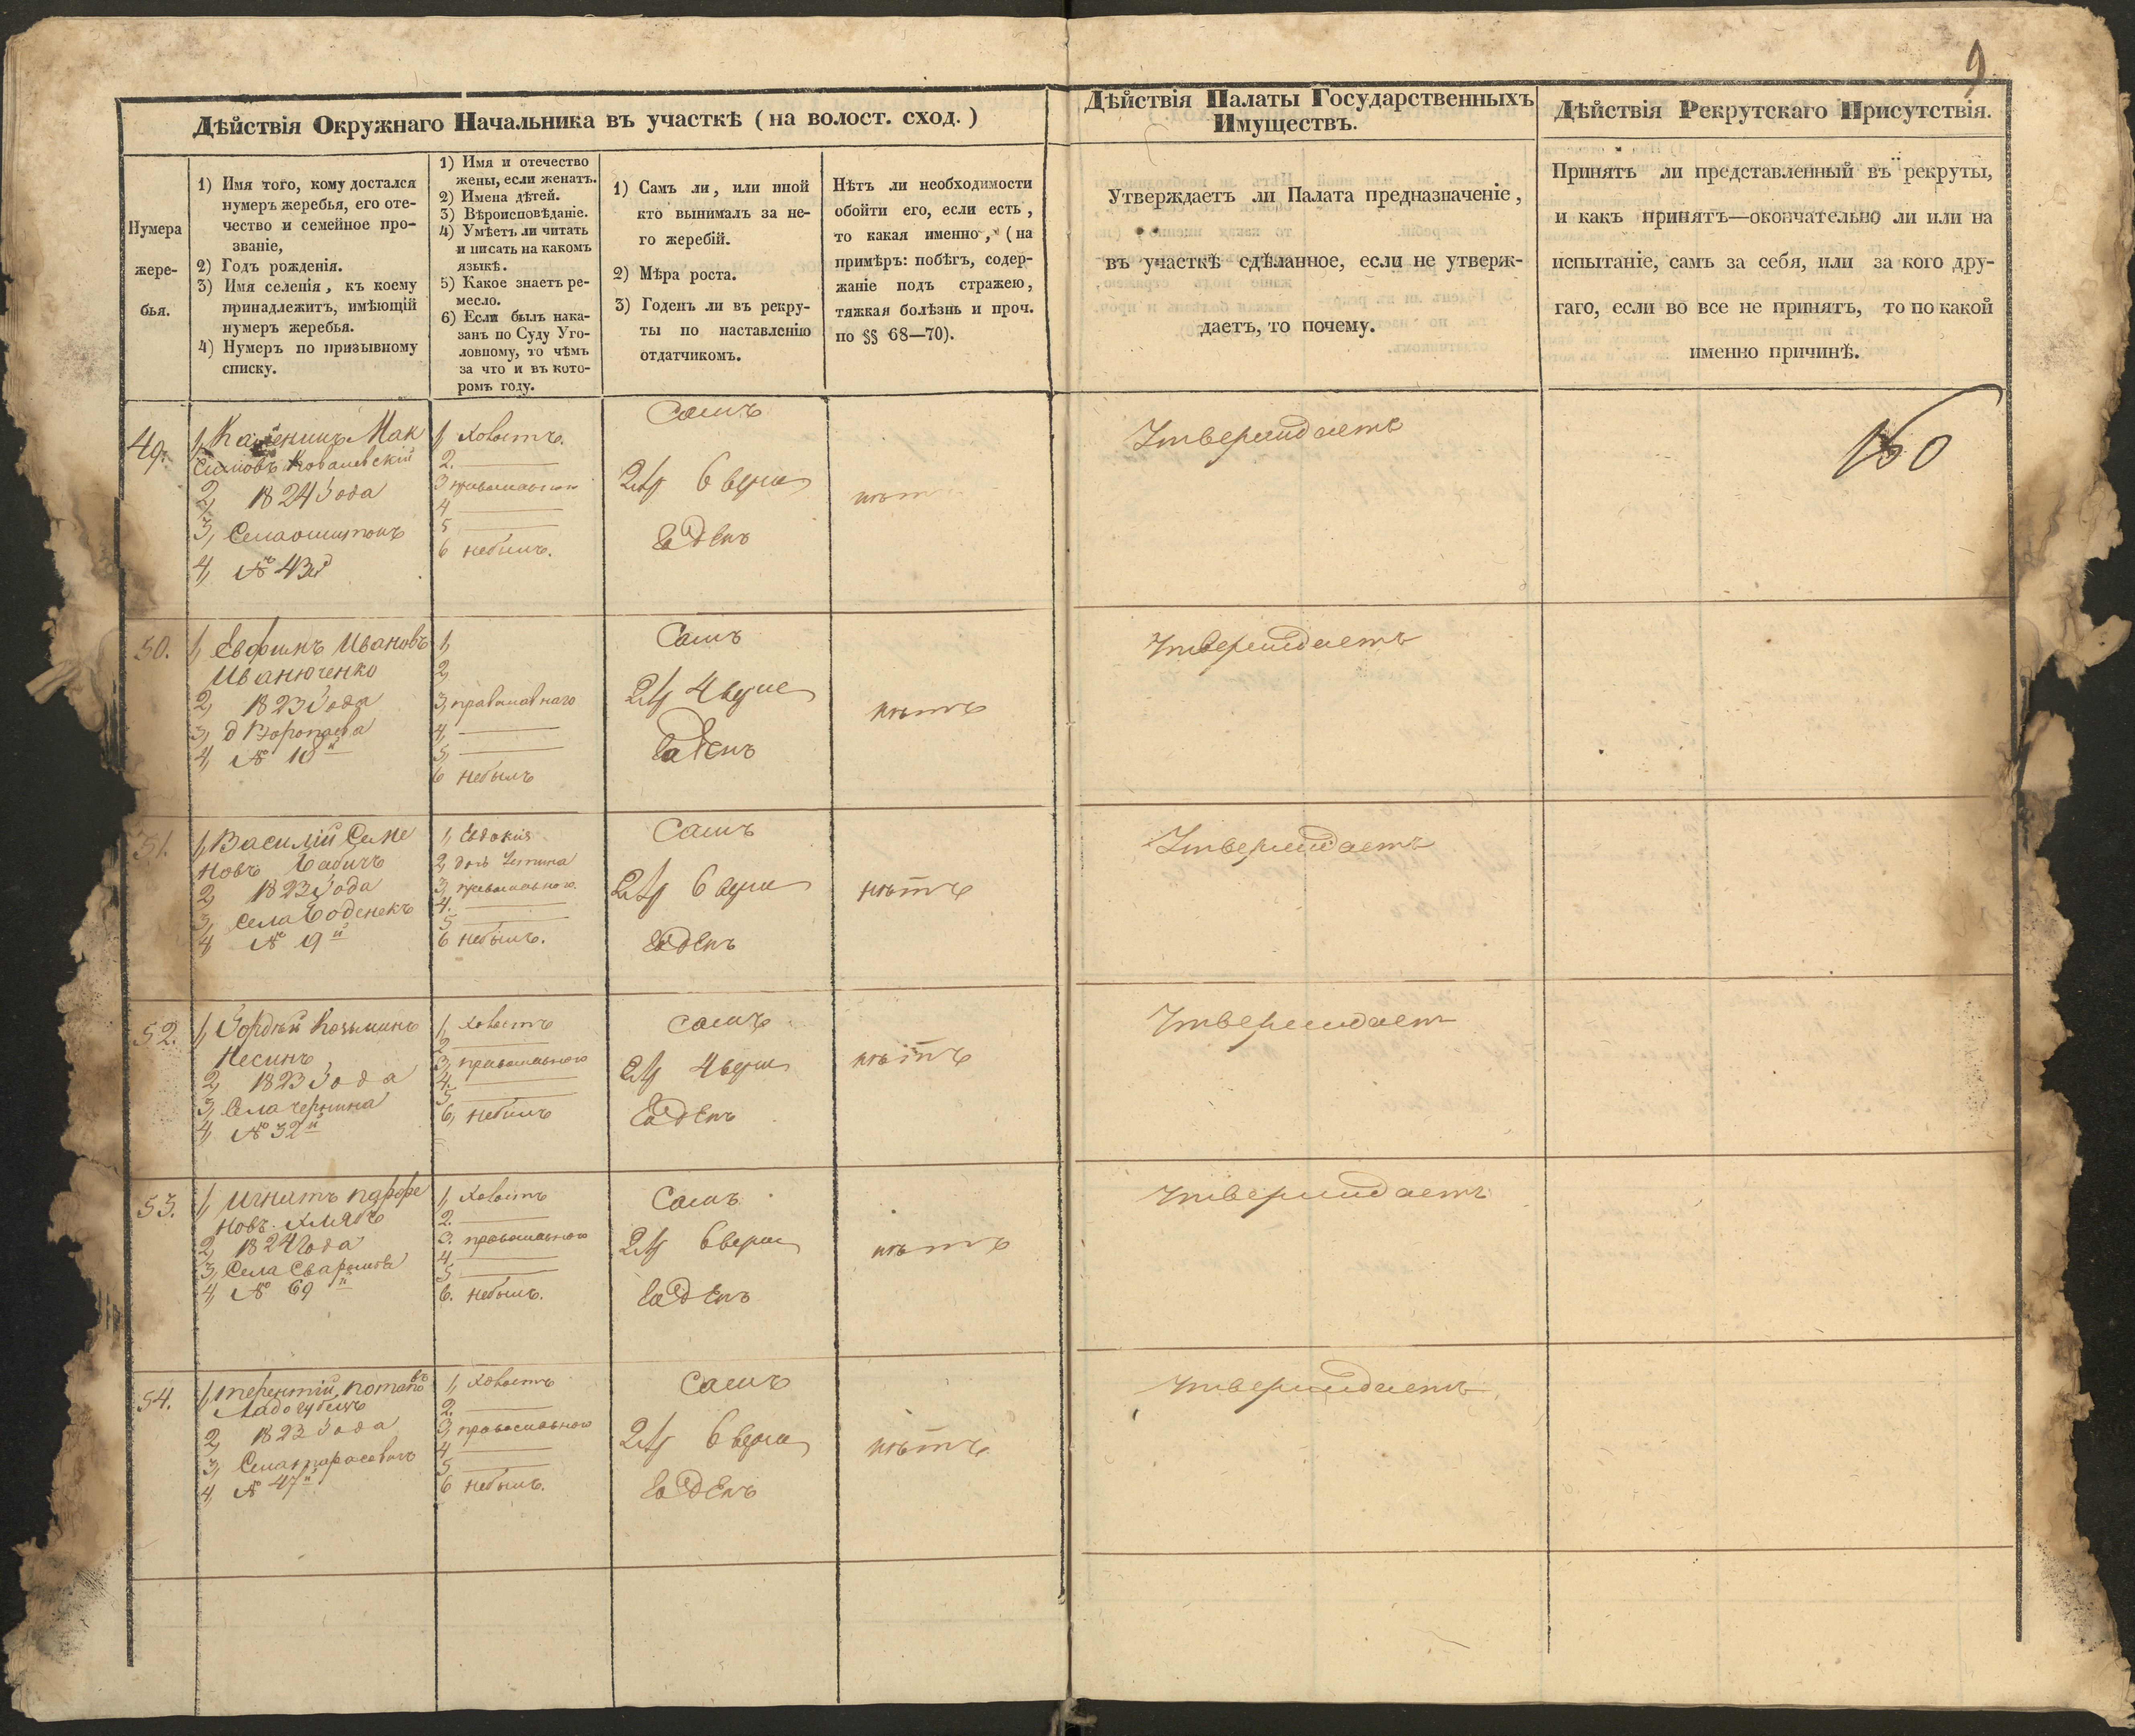 9
Дѣйствія Окружнаго Начальника въ участкѣ (на волост. сход.)
Дѣйствія Палаты Государственныхъ
Имуществъ.
Дѣйствія Рекрутскаго Присутствія.
Нумера
жере-
бья.
1) Имя того, кому достался
нумеръ жеребья, его оте-
чество и семейное про-
званіе,
2) Годъ рожденія.
3) Имя селенія, къ коему
принадлежитъ, имѣющій
нумеръ жеребья.
4) Нумеръ по призывному
списку.
1) Имя и отечество
жены, если женатъ.
2) Имена дѣтей.
3) Вѣроисповѣданіе.
4) Умѣетъ ли читать
и писать на какомъ
языкѣ.
5) Какое знаетъ ре-
месло.
6) Если былъ нака-
занъ по Суду Уго-
ловному, то чѣмъ
за что и въ кото-
ромъ году.
1) Самъ ли, или иной
кто вынималъ за не-
го жеребій.
2) Мѣра роста.
3) Годенъ ли въ рекру-
ты по наставленію
отдатчикомъ.
Нѣтъ ли необходимости
обойти его, если есть,
то какая именно, (на
примѣръ: побѣгъ, содер-
жаніе подъ стражею,
тяжкая болѣзнь и проч.
по §§ 68—70).
Утверждаетъ ли Палата предназначеніе,
въ участкѣ сдѣланное, если не утверж-
даетъ, то почему.
Принятъ ли представленный въ рекруты,
и какъ принятъ—окончательно ли или на
испытаніе, самъ за себя, или за кого дру-
гаго, если во все не принятъ, то по какой
именно причинѣ.
49.
1, Мак
симовъ Ковалевскій
2, 1824 года
3, Села
4, № 43й
1, Холостъ.
2.
3 православного
4
5
6 небылъ.
Самъ
2 ар 6 верш
Годенъ
нѣтъ
Утверждаетъ
50.
1, Евфимъ Ивановъ
Иванюченко
2, 1823 года
3, д Воропаева
4, № 10й
1,
2,
3, православнаго
4,
5,
6 небылъ
Самъ
2 ар 4 верш
Годенъ
нѣтъ
Утверждаетъ
51.
1, Василій Семе
новъ Бабичъ
2, 1823 года
3, села Боденекъ
4, № 9й
1, Евдокія
2, дочь
3, православного.
4.
5
6 небылъ.
Самъ
2 ар 6 верш
Годенъ
нѣтъ
Утверждаетъ
52.
1, Гордѣй Козьминъ
Несинъ
2, 1823 года
3, Села чернина
4, № 32й
1, Холостъ
2
3, православного
4.
5
6, небылъ
Самъ
2 ар 4 верш
Годенъ
нѣтъ
Утверждает
53.
1, Игнатъ
новъ Хмякъ
2, 1824 года
3, Села Сваромья
4, № 69й
1, Холостъ
2.
3. православного
4
5
6. небылъ.
Самъ
2 ар 6 верш
Годенъ
нѣтъ
Утверждаетъ
54.
1, терентій, потаповъ
Ладогубецъ
2, 1823 года
3, Села тарасовичъ
4, № 47й
1, Холостъ
2.
3, православного
4
5
6 небылъ.
Самъ
2 ар 6 верш
Годенъ
нѣтъ
Утверждаетъ